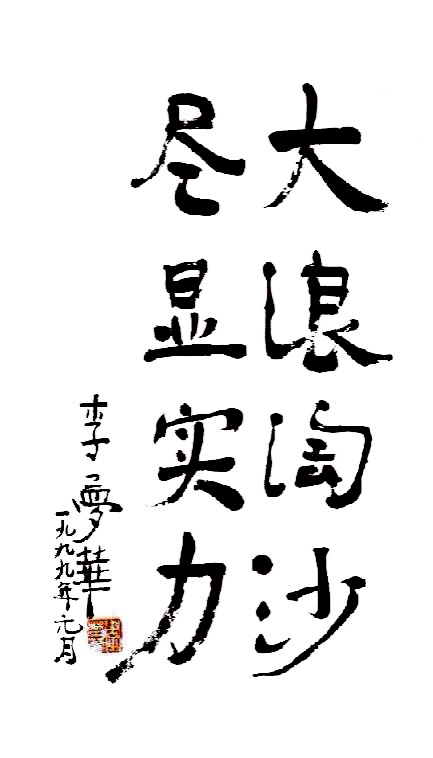 大浪淘沙
尽显实力
李夢華
一九九九年元月